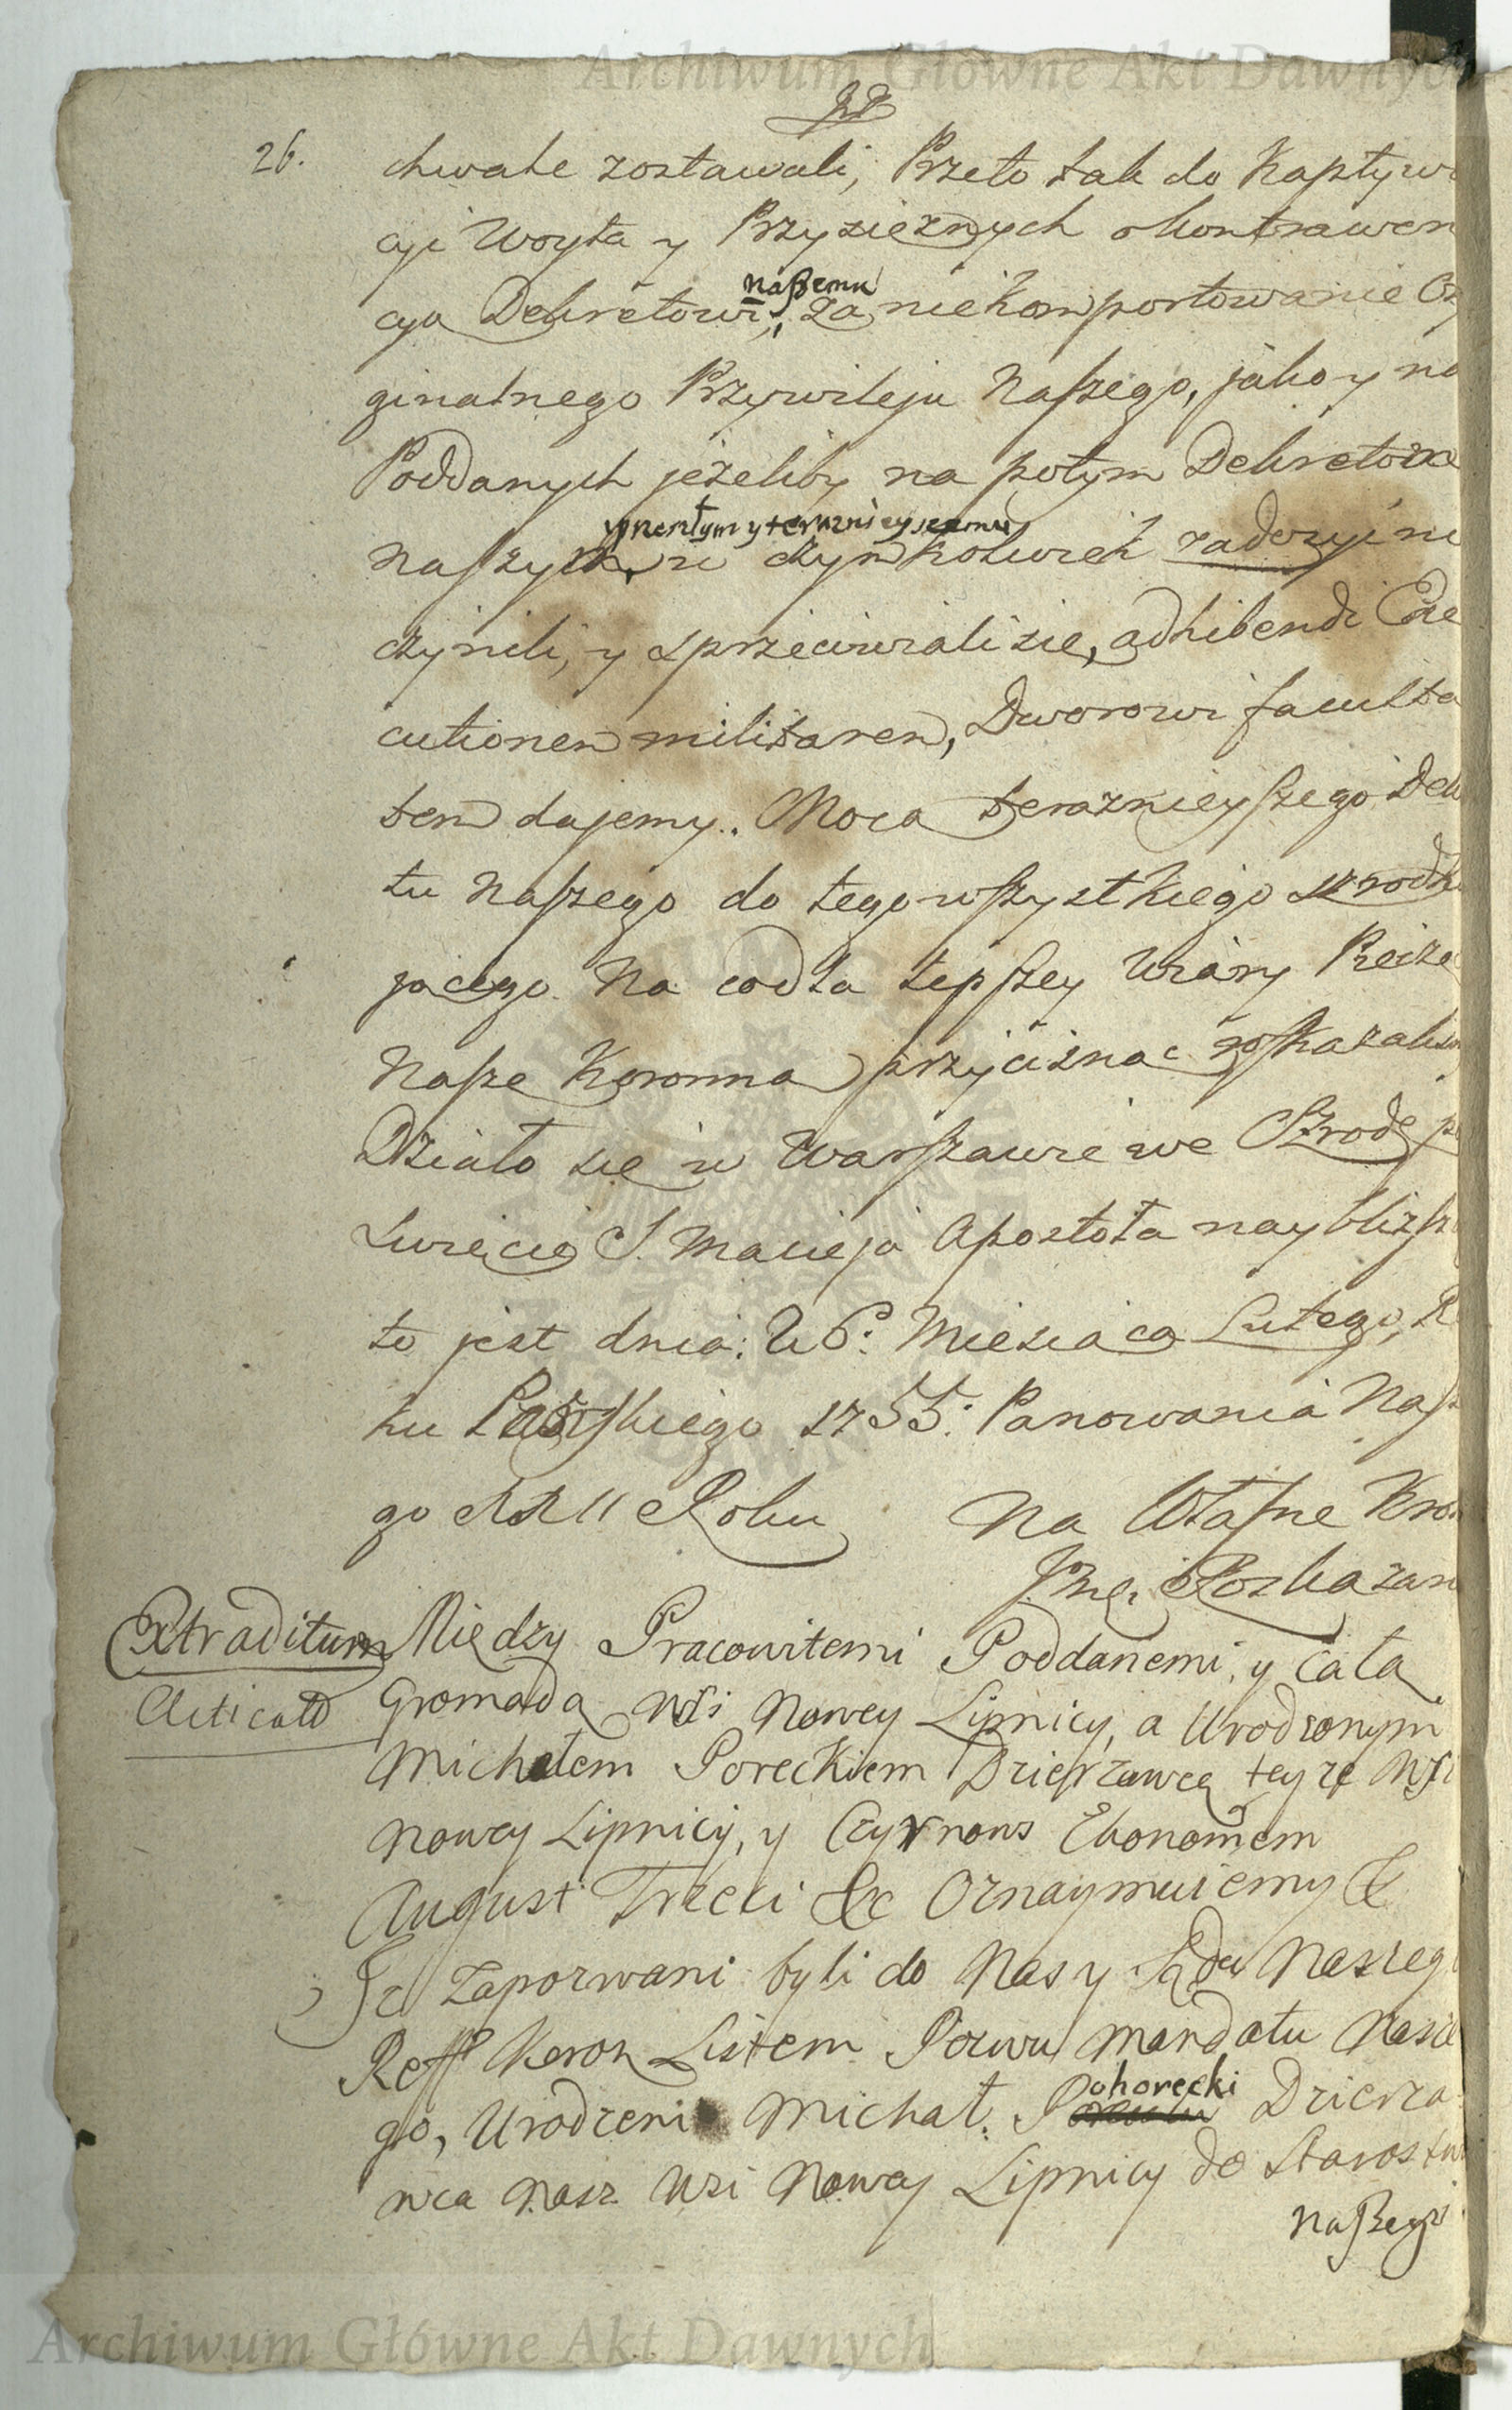 Archiwum Główne Akt Dawnych
26.
chwale zostawali, Przeto tak do Kaptywa
cyi Woyta y Przysięznych o kontrawen
naszemu
cyą Dekretowi, za nie komportowanie Ory
ginalnego Przywileju Naszego, jako y na
Poddanych jeżeliby na potym Dekretom
przeszłym y teraznieyszemu
naszym, w czymkolwiek zadosyć nie
czynili, y sprzeciwiali sie, adhibendi Exe
cutionem militarem, Dworowi faculta
tem dajemy. Mocą teraznieyszego Dek
tu Naszego do tego wszystkiego
jącego. Na co dla lepszey Wiary Pieczę
Nasze Koronną przycisnąc roskazalism
Działo się w Warszawie we Szrodę po
Swięcie S. Macieja Apostoła naybliższ
to jest dnia: 26: Miesiąca Lutego, Ro
ku Pańskiego 1755: Panowania Nasze
go XXII Roku Na Własne Kro
JMci Rozkazan
Extraditum Między Pracowitemi Poddanemi, y całą
Acticato Gromadą Wsi Nowey Lipnicy, a Urodzonym
Michałem Poreckiem Dzierzawcą teyze Wsi
Nowey Lipnicy, y Czyrnons Ekonomem
August Trzeci &c Oznaymuiemy &
Iż Zapozwani byli do Nas y Sądu Naszego
Reff Koron Listem Pozwu Mandatu Nasze
ohorecki
go, Urodzeni Michał P Dzierża
wca Nasz Wsi Nowey Lipnicy do Starostw
naszego
Archiwum Główne Akt Dawnych